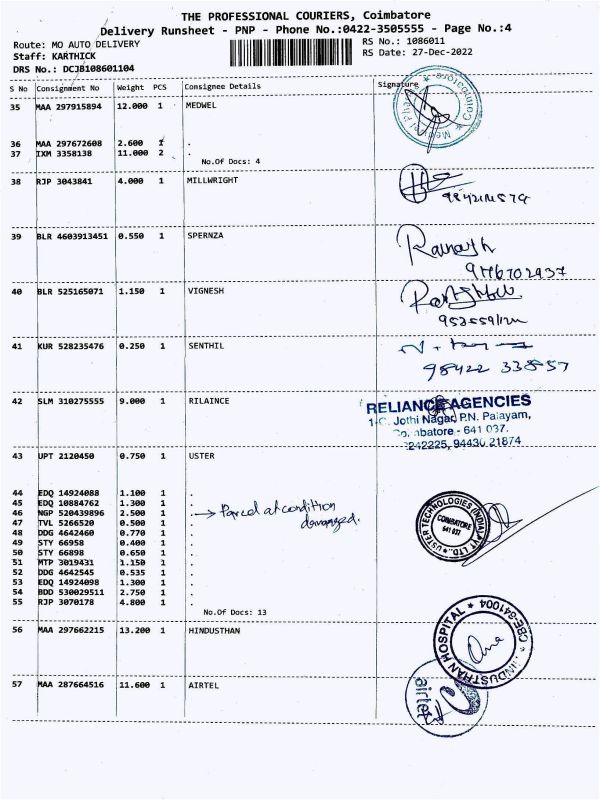 THE PROFESSIONAL COURIERS, Coimbatore
Delivery Runsheet - PNP - Phone No.:0422-3505555 - Page No.:4
Route: MO AUTO DELIVERY
RS No.: 1086011
Staff: KARTHICK
RS Date: 27-Dec-2022
DRS No.: DCJB108601104
S No Consignment No Weight PCS Consignee Details Signature
35 MAA 297915894 12.000 1 MEDWEL
36 MAA 297672608 2.600 1 .
37 IXM 3358138 11.000 2 .
No.Of Docs: 4
38 RJP 3043841 4.000 1 MILLWRIGHT
39 BLR 4603913451 0.550 1 SPERNZA
40 BLR 525165071 1.150 1 VIGNESH
41 KUR 528235476 0.250 1 SENTHIL
98422 33857
42 SLM 310275555 9.000 1 RILAINCE
RELIANCE AGENCIES
Jothi Nagar, P.N. Palayam,
641 037.
2242225, 94430 21874
43 UPT 2120450 0.750 1 USTER
44 EDQ 14924088 1.100 1 .
45 EDQ 10884762 1.300 1 .
46 NGP 520439896 2.500 1 . → Parcel at condition
damanged.
47 TVL 5266520 0.500 1 .
48 DDG 4642460 0.770 1 .
49 STY 66958 0.400 1 .
50 STY 66898 0.650 1 .
51 MTP 3019431 1.150 1 .
52 DDG 4642545 0.535 1 .
53 EDQ 14924098 1.300 1 .
54 BDD 530029511 2.750 1 .
55 RJP 3070178 4.800 1 .
No.Of Docs: 13
USTER TECHNOLOGIES (INDIA) PVT LTD.,
COIMBATORE
641 037
56 MAA 297662215 13.200 1 HINDUSTHAN
HINDUSTHAN HOSPITAL * CBE-641004 *
57 MAA 287664516 11.600 1 AIRTEL
airtel